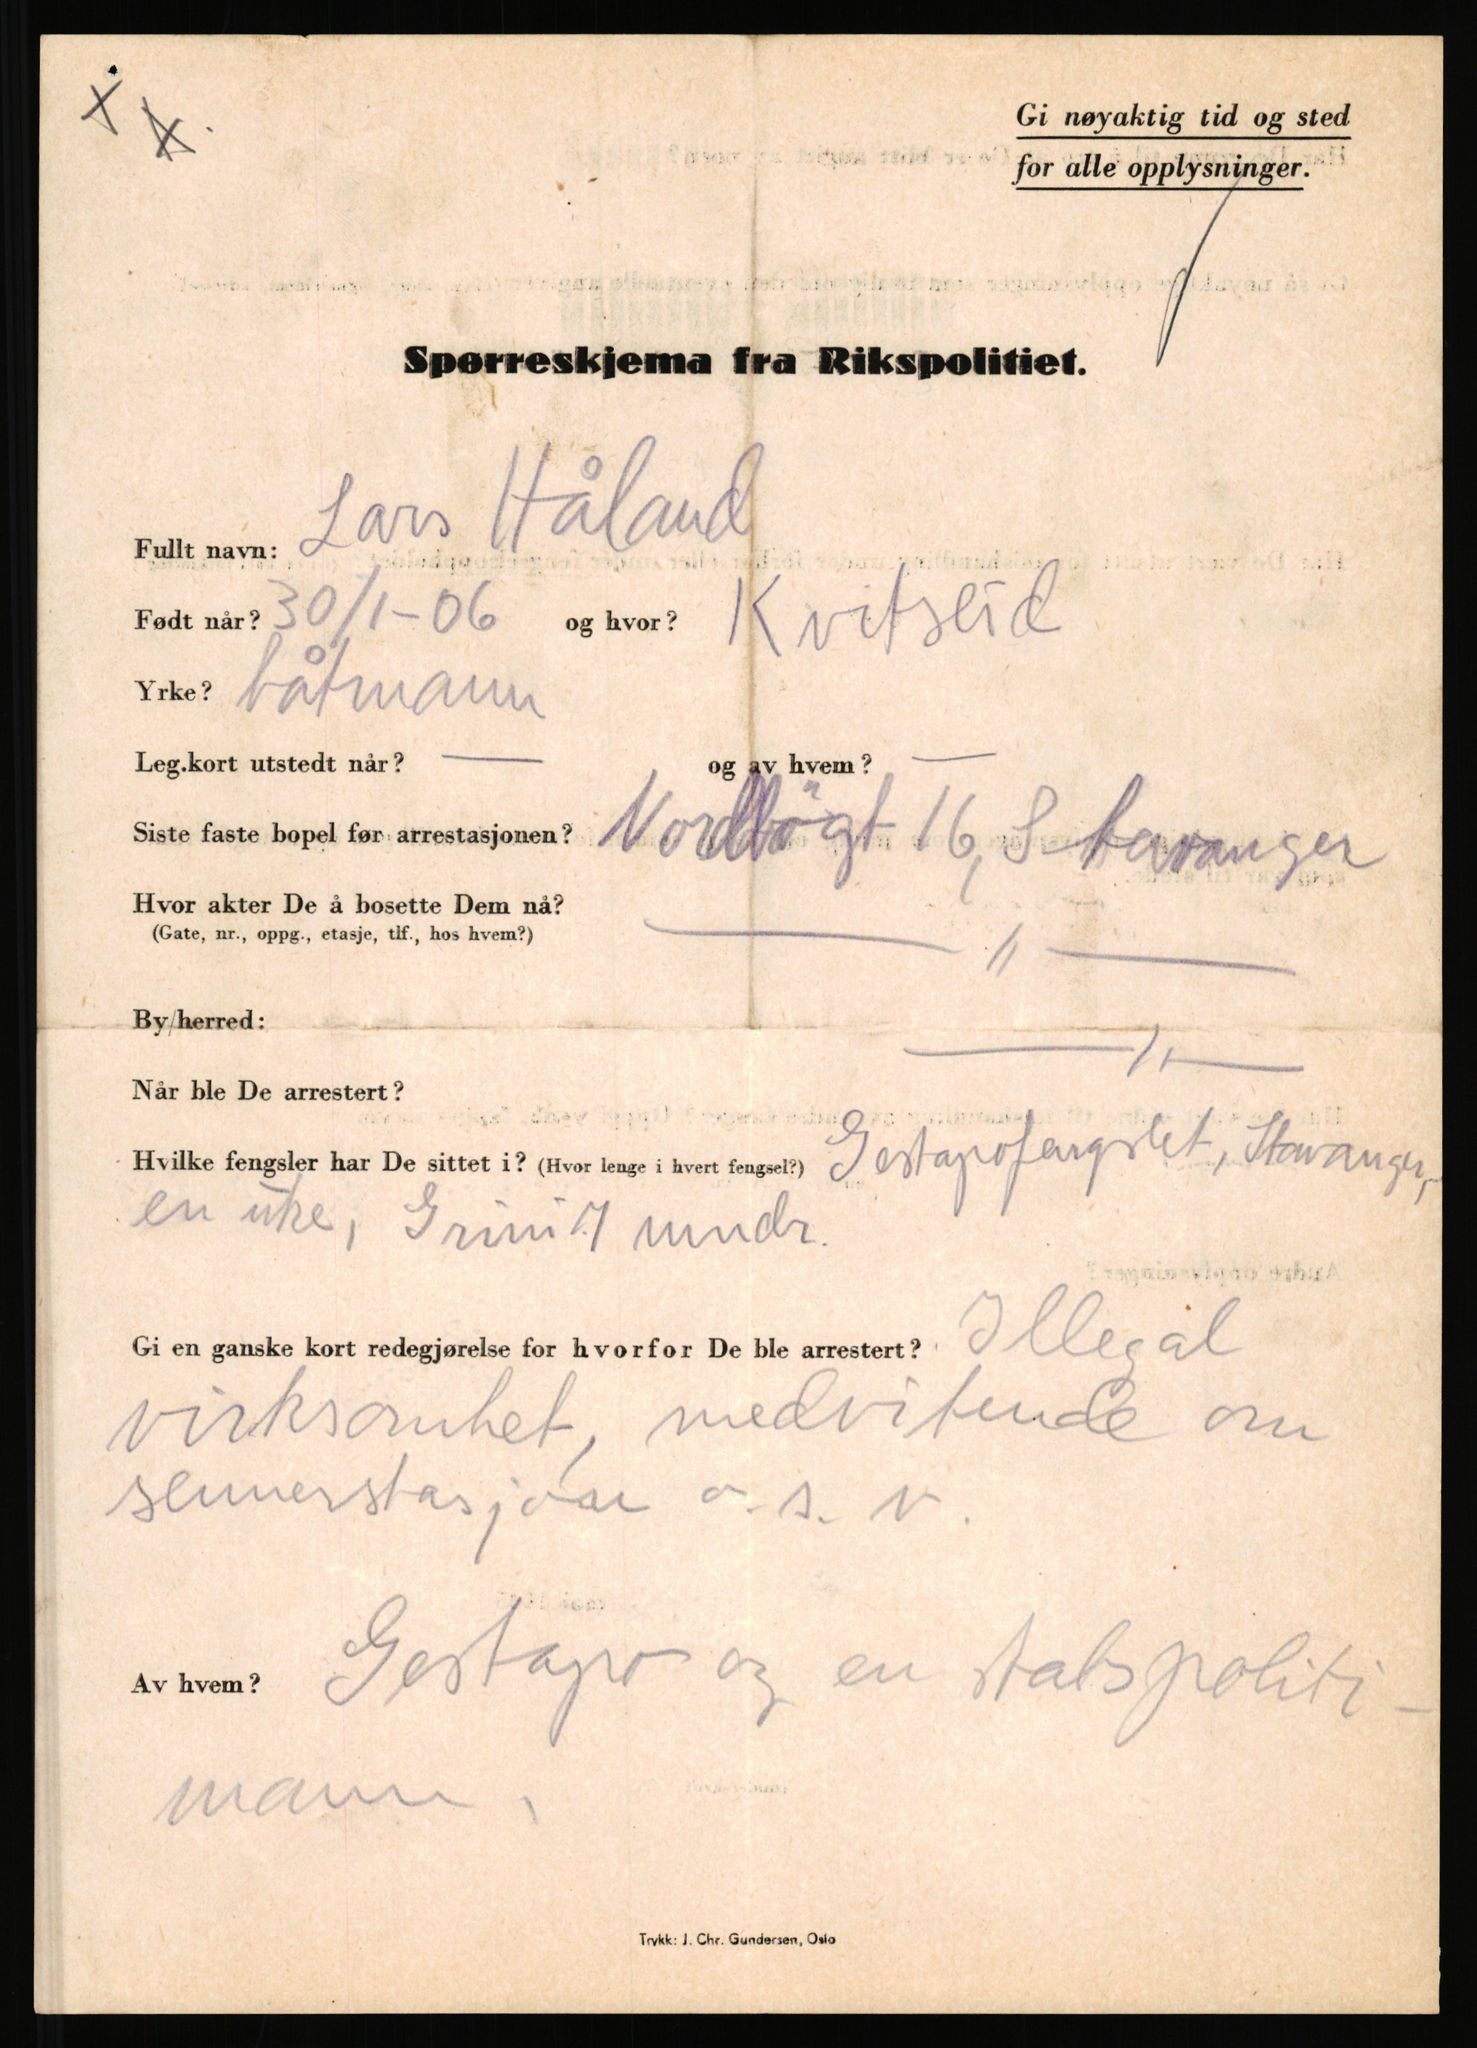 Gi nøyaktig tid og sted
for alle opplysninger.
Spørreskjema fra Rikspolitiet.
Fullt navn: Lars Håland
Født når? 30/1-06 og hvor? Kvitseid
Yrke? båtmann
Leg.kort utstedt når? — og av hvem? —
Siste faste bopel før arrestasjonen? Nordbögt 16, Stavanger
Hvor akter De å bosette Dem nå?
(Gate, nr., oppg., etasje, tlf., hos hvem?) — " —
By/herred: — " —
Når ble De arrestert?
Hvilke fengsler har De sittet i? (Hvor lenge i hvert fengsel?) Gestapofengslet, Stavanger,
en uke, Grini 7 mndr.
Gi en ganske kort redegjørelse for hvorfor De ble arrestert? Illegal
virksomhet, medvitende om
sennerstasjon o.s.v.
Av hvem? Gestapo og en statspoliti-
mann.
Trykk: J. Chr. Gundersen, Oslo